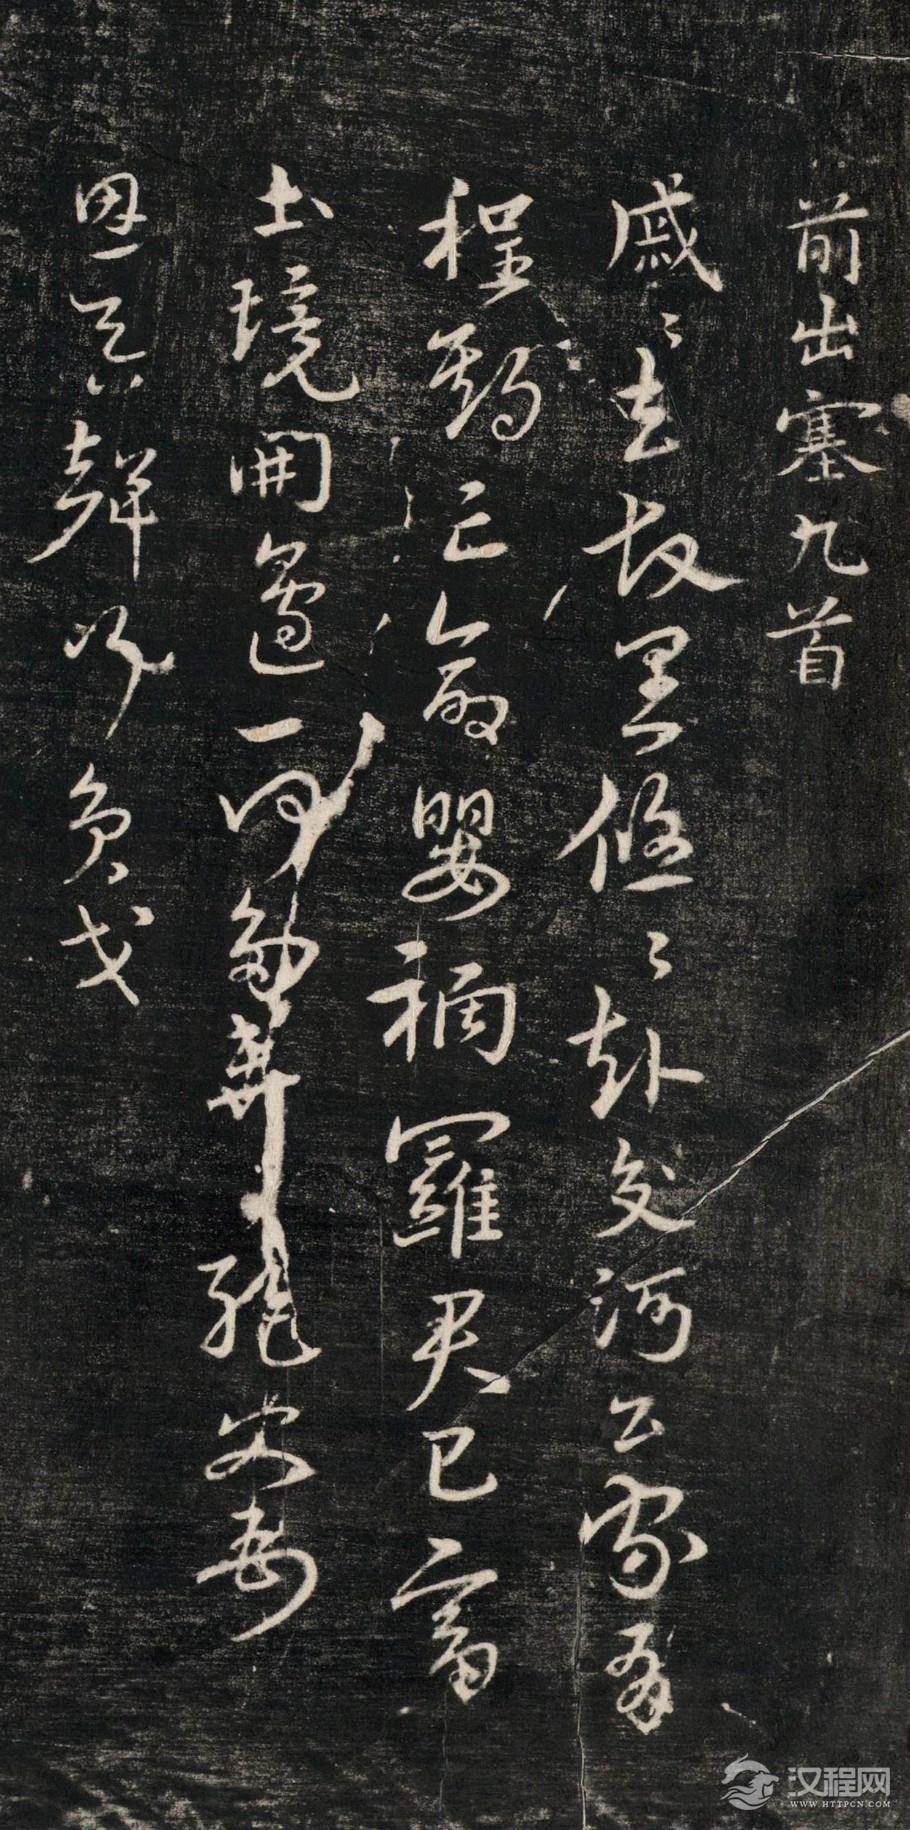 前出塞九首
戚〻去故里悠〻赴交河公家有
程期亡命嬰禍羅君已富
土境開邊一何多棄絕父母
恩吞聲行負戈
汉程网
WWW.HTTPCN.COM